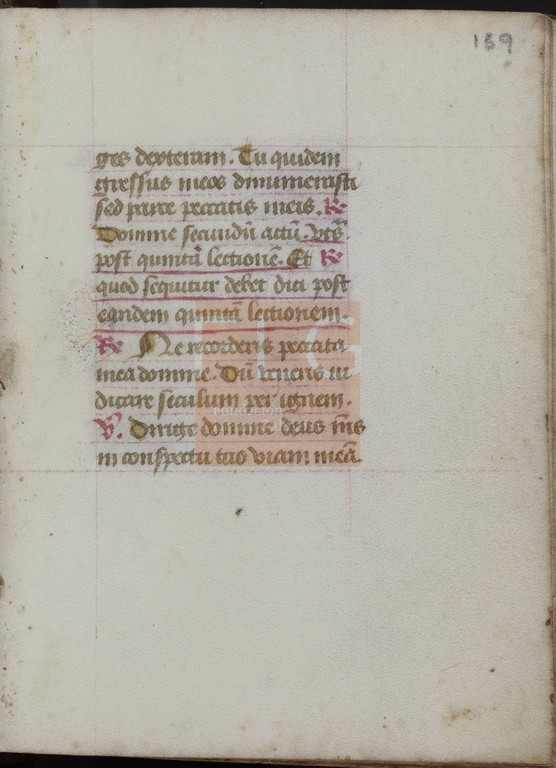 159
ges dexteram. Tu quidem
gressus meos dinumerasti
sed parce peccatis meis. R̃
Domine secundũ actũ. vt sͣ
post quintã lectionẽ. Et R̃
quod sequitur debet dici post
eandem quintã lectionem.
R̃ Ne recorderis peccata
mea domine. Dũ veneris iu
dicare seculum per ignem.
V̓. Dirige domine deus m̃s
in conspectu tuo viam meã.